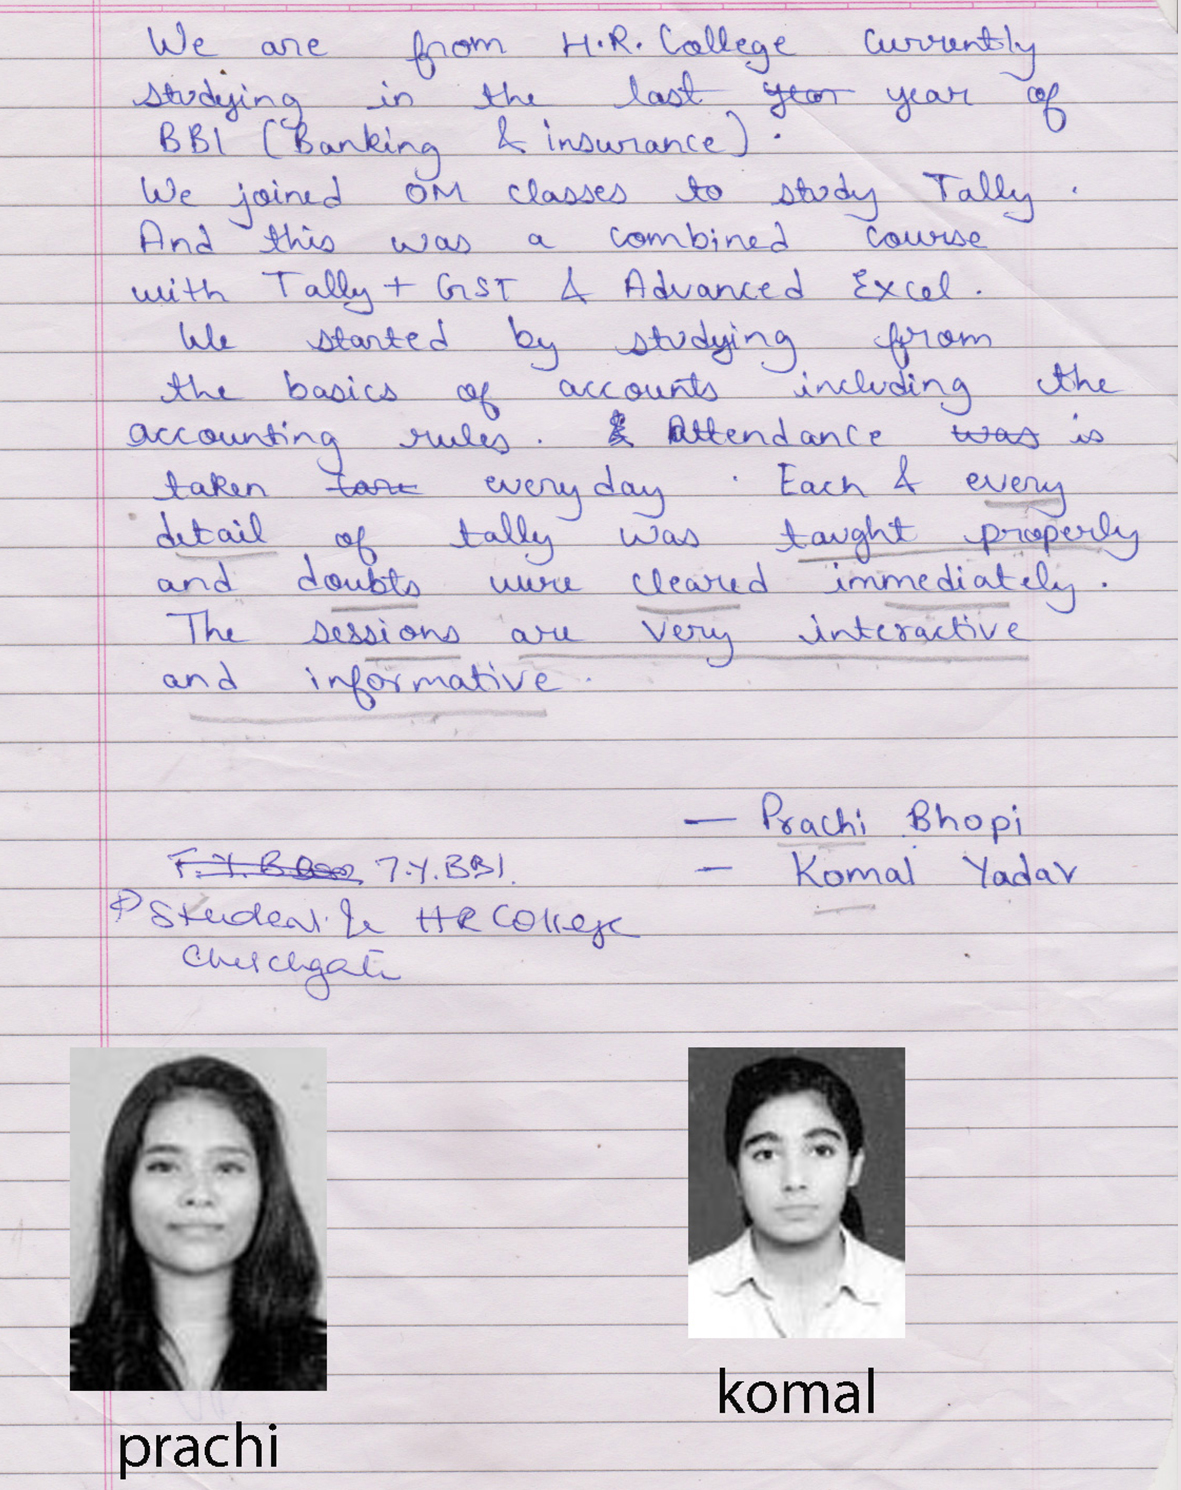 We are from H.R. College Currently
studying in the last year year of
BBI (Banking & insurance).
We joined OM classes to study Tally.
And this was a combined course
with Tally + GST & Advanced Excel.
We started by studying from
the basics of accounts including the
accounting rules. Attendance was is
taken everyday. Each & every
detail of tally was taught properly
and doubts were cleared immediately.
The sessions are very interactive
and informative.
— Prachi Bhopi
— Komal Yadav
T.Y.BBI.
Student HR College
Churchgate
prachi
komal